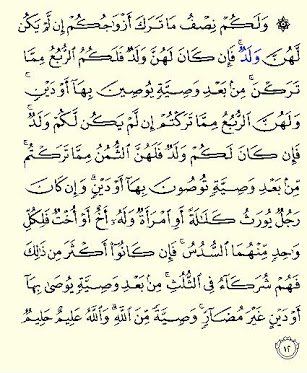 ۞ وَلَكُمْ نِصْفُ مَا تَرَكَ أَزْوَاجُكُمْ إِن لَّمْ يَكُن
لَّهُنَّ وَلَدٌ ۚ فَإِن كَانَ لَهُنَّ وَلَدٌ فَلَكُمُ الرُّبُعُ مِمَّا
تَرَكْنَ ۚ مِنۢ بَعْدِ وَصِيَّةٍ يُوصِينَ بِهَا أَوْ دَيْنٍ ۚ
وَلَهُنَّ الرُّبُعُ مِمَّا تَرَكْتُمْ إِن لَّمْ يَكُن لَّكُمْ وَلَدٌ ۚ
فَإِن كَانَ لَكُمْ وَلَدٌ فَلَهُنَّ الثُّمُنُ مِمَّا تَرَكْتُم ۚ
مِّنۢ بَعْدِ وَصِيَّةٍ تُوصُونَ بِهَا أَوْ دَيْنٍ ۗ وَإِن كَانَ
رَجُلٌ يُورَثُ كَلَٰلَةً أَوِ امْرَأَةٌ وَلَهُۥٓ أَخٌ أَوْ أُخْتٌ فَلِكُلِّ
وَٰحِدٍ مِّنْهُمَا السُّدُسُ ۚ فَإِن كَانُوٓا۟ أَكْثَرَ مِن ذَٰلِكَ
فَهُمْ شُرَكَآءُ فِي الثُّلُثِ ۚ مِنۢ بَعْدِ وَصِيَّةٍ يُوصَىٰ بِهَآ
أَوْ دَيْنٍ غَيْرَ مُضَآرٍّ ۚ وَصِيَّةً مِّنَ اللَّهِ ۗ وَاللَّهُ عَلِيمٌ حَلِيمٌ
١٢